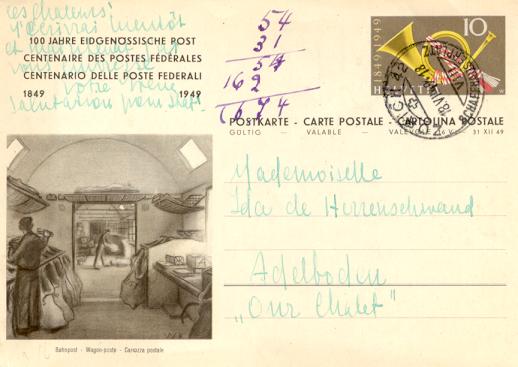 les chaleurs!
J'écrirai bientôt
et maintenant je
vous
votre
Salutation pour
100 JAHRE EIDGENÖSSISCHE POST
CENTENAIRE DES POSTES FÉDÉRALES
CENTENARIO DELLE POSTE FEDERALI
1849 1949
54
31
54
162
1674
1849-1949
10
HELVETIA
POSTKARTE - CARTE POSTALE - CARTOLINA POSTALE
GÜLTIG — VALABLE — VALEVOLE 31 XII 49
Mademoiselle
Ida de Herrenschwand
Adelboden
„Our Chalet"
Bahnpost - Wagon-poste - Carrozza postale